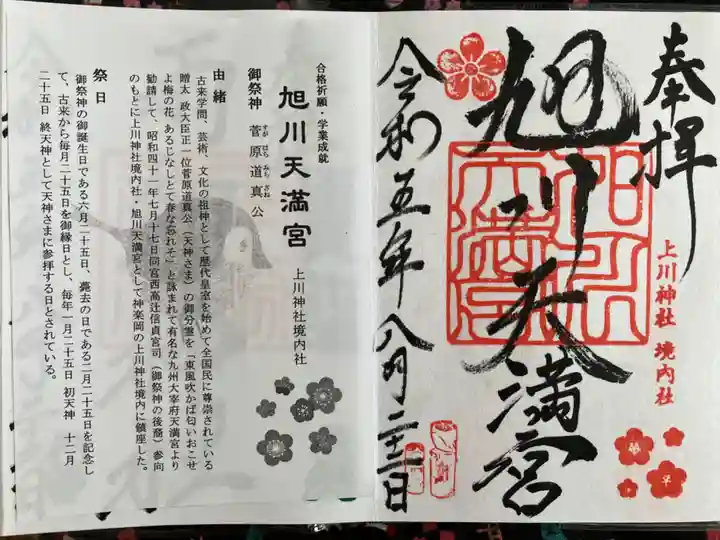 奉拝
旭川天満宮
上川神社 境内社
令和五年八月二十二日
合格祈願・学業成就
旭川天満宮
上川神社境内社
御祭神 菅原道真公
すが はら みち ざね
由緒
古来学問、芸術、文化の祖神として歴代皇室を始めて全国民に尊崇されている
贈太 政大臣正一位菅原道真公（天神さま）の御分霊を「東風吹かば匂いおこせ
よ梅の花 あるじなしとて春な忘れそ」と詠まれて有名な九州大宰府天満宮より
勧請して、昭和四十一年七月十七日同宮西高辻信貞宮司（御祭神の後裔）参向
のもとに上川神社境内社・旭川天満宮として神楽岡の上川神社境内に鎮座した。
祭日
御祭神の御誕生日である六月二十五日、薨去の日である二月二十五日を記念し
て、古来から毎月二十五日を御縁日とし、毎年一月二十五日 初天神 十二月
二十五日 終天神として天神さまに参拝する日とされている。